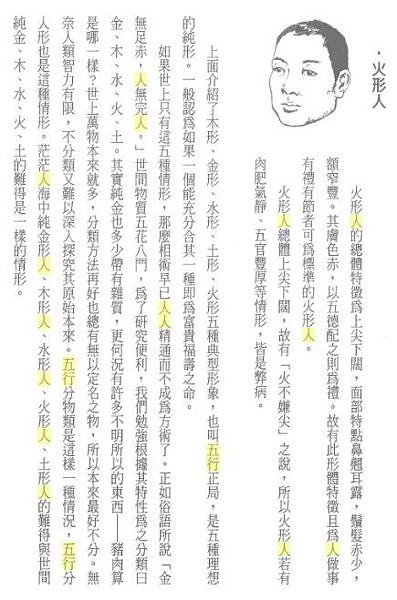 ・火形人
火形人的總體特徵爲上尖下闊，面部特點鼻翹耳露，鬚髮赤少，
額窄豐。其膚色赤，以五德配之則爲禮。故有此形體特徵且爲人做事
有禮有節者可爲標準的火形人。
火形人總體上尖下闊，故有「火不嫌尖」之說，所以火形人若有
肉肥氣靜、五官豐厚等情形，皆是弊病。
上面介紹了木形、金形、水形、土形、火形五種典型形象，也叫五行正局，是五種理想
的純形。一般認爲如果一個能充分合其一種即爲富貴福壽之命。
如果世上只有這五種情形，那麼相術早已人人精通而不成爲方術了。正如俗語所說「金
無足赤，人無完人。」世間物質五花八門，爲了研究便利，我們勉強根據其特性爲之分類曰
金、木、水、火、土。其實純金也多少帶有雜質，更何況有許多不明所以的東西——豬肉算
是哪一樣？世上萬物本來就多，分類方法再好也總有無以定名之物，所以本來最好不分。無
奈人類智力有限，不分類又難以深入探究其原始本來。五行分物類是這樣一種情況，五行分
人形也是這種情形。茫茫人海中純金形人、木形人、水形人、火形人、土形人的難得與世間
純金、木、水、火、土的難得是一樣的情形。